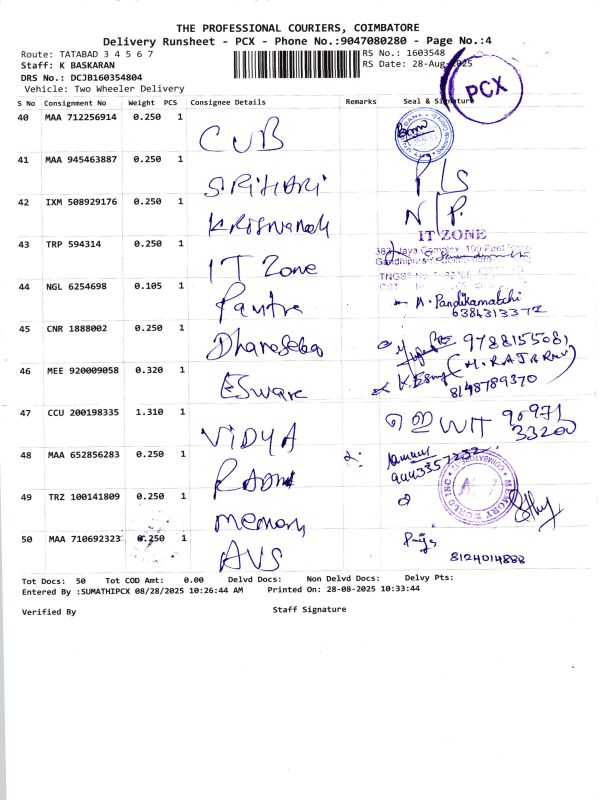 THE PROFESSIONAL COURIERS, COIMBATORE
Delivery Runsheet - PCX - Phone No.:9047080280 - Page No.:4
Route: TATABAD 3 4 5 6 7
RS No.: 1603548
Staff: K BASKARAN
RS Date: 28-Aug-2025
DRS No.: DCJB160354804
Vehicle: Two Wheeler Delivery
PCX
S No Consignment No Weight PCS Consignee Details Remarks Seal & Signature
40 MAA 712256914 0.250 1
CUB
41 MAA 945463887 0.250 1
SRIHARI
42 IXM 508929176 0.250 1
N/P.
43 TRP 594314 0.250 1
IT ZONE
IT Zone
44 NGL 6254698 0.105 1
A. Pandikamatchi
6384313372
45 CNR 1888002 0.250 1
9788155081
46 MEE 920009058 0.320 1
ESware
8148789370
47 CCU 200198335 1.310 1
VIDYA
90971
33200
48 MAA 652856283 0.250 1
49 TRZ 100141809 0.250 1
memory
MEMORY WORLD INC
50 MAA 710692323 0.250 1
AVS
8124014888
Tot Docs: 50 Tot COD Amt: 0.00 Delvd Docs: Non Delvd Docs: Delvy Pts:
Entered By :SUMATHIPCX 08/28/2025 10:26:44 AM Printed On: 28-08-2025 10:33:44
Verified By Staff Signature